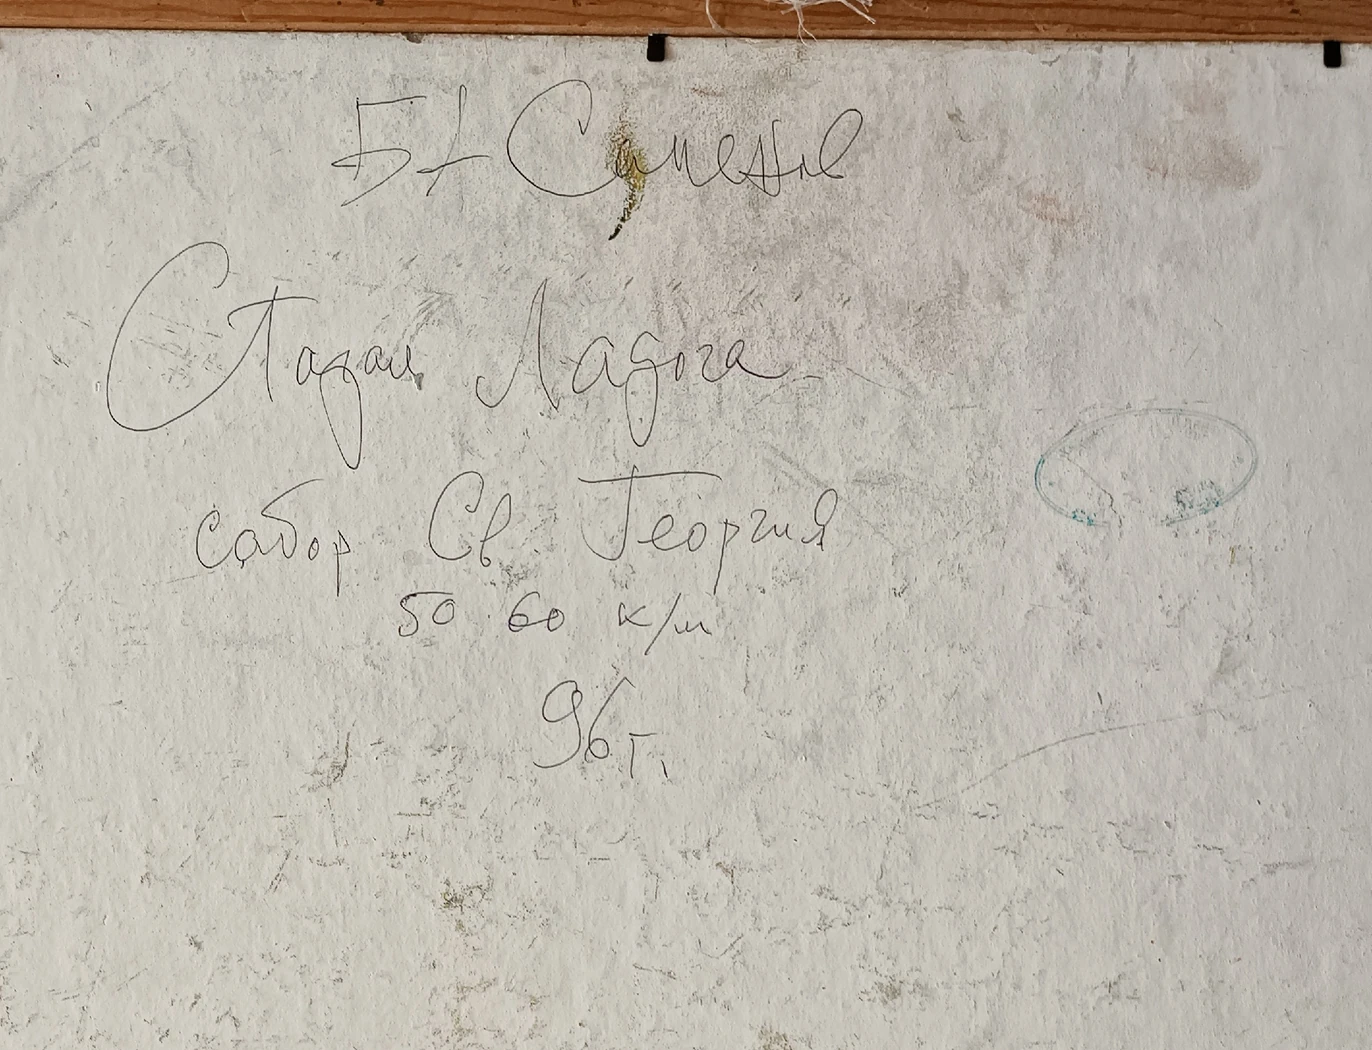 БА Семенов
Старая Ладога
собор Св Георгия
50 60 к/м
96 г.